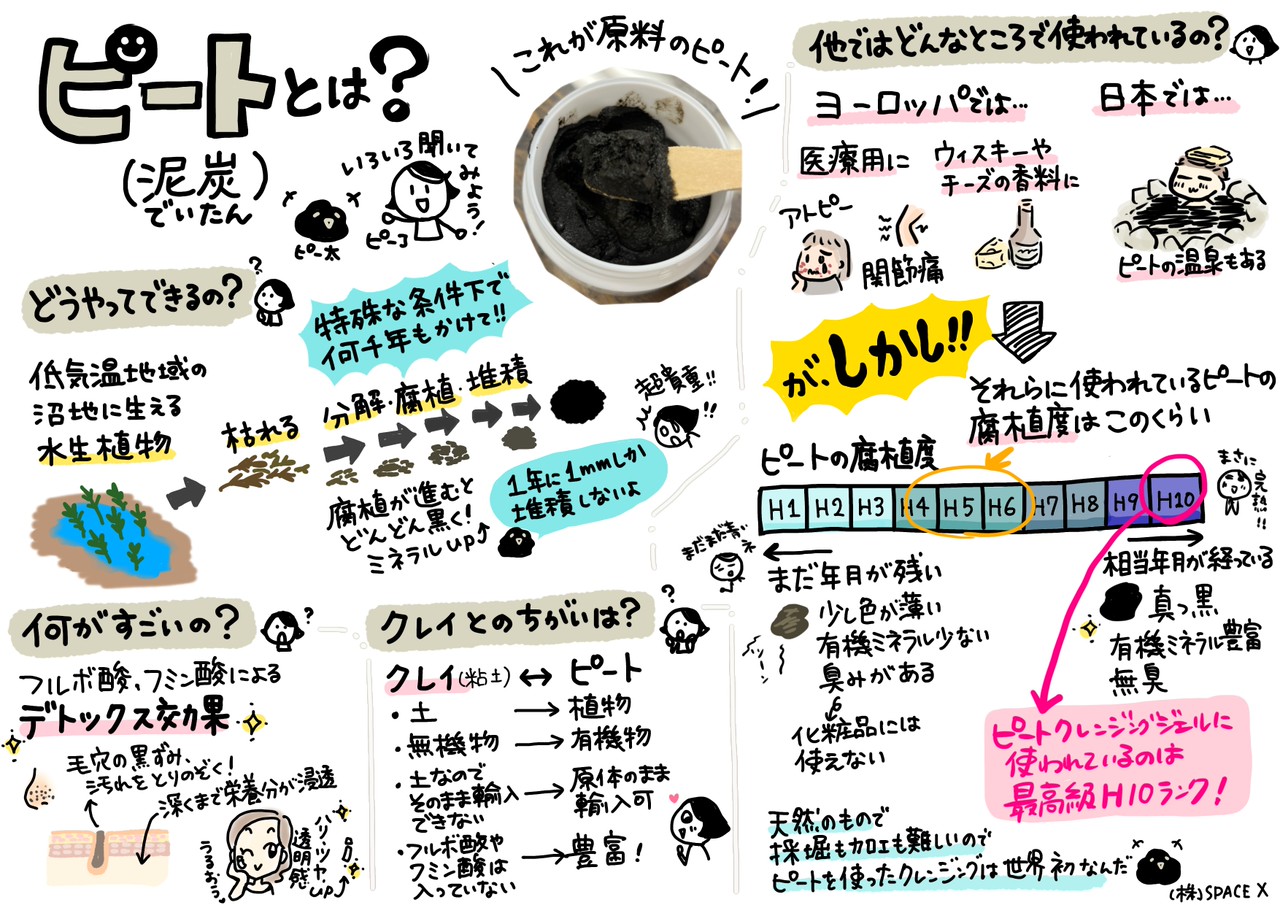 ピートとは?
(泥炭)
でいたん
いろいろ聞いて
みよう!
ピー太
ピー子
\これが原料のピート!/
どうやってできるの?
?
低気温地域の
沼地に生える
水生植物
枯れる
特殊な条件下で
何千年もかけて!!
分解・腐植・堆積
超貴重!!
!!
腐植が進むと
どんどん黒く!
ミネラルup↑
1年に1mmしか
堆積しないよ
何がすごいの?
?
フルボ酸、フミン酸による
デトックス効果
毛穴の黒ずみ、
汚れをとりのぞく!
深くまで栄養分が浸透
うるおう
ハリ・ツヤ
透明感
up↑
クレイとのちがいは?
?
クレイ(粘土)↔ピート
・土→植物
・無機物→有機物
・土なので
そのまま輸入
できない
→原体のまま
輸入可
・フルボ酸や
フミン酸は
入っていない
→豊富!
他ではどんなところで使われているの?
ヨーロッパでは…
医療用に
アトピー
関節痛
ウィスキーや
チーズの香料に
日本では…
ピートの温泉もある
が、しかし!!
それらに使われているピートの
腐植度はこのくらい
ピートの腐植度
H1 H2 H3 H4 H5 H6 H7 H8 H9 H10
まさに
完熟!!
まだまだ青いネ
まだ年月が残い
少し色が薄い
有機ミネラル少ない
臭みがある
化粧品には
使えない
相当年月が経っている
真っ黒
有機ミネラル豊富
無臭
ピートクレンジングジェルに
使われているのは
最高級H10ランク!
天然のもので
採堀も加工も難しいので
ピートを使ったクレンジングは世界初なんだ
(株)SPACE X